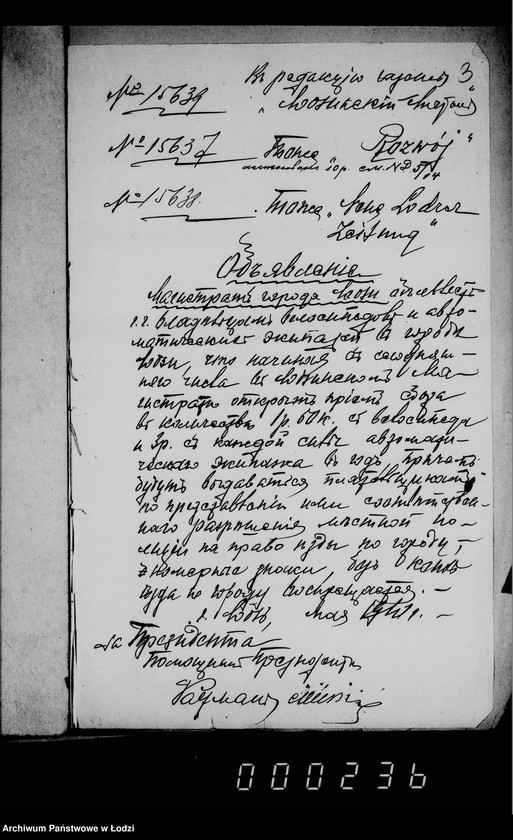 Въ редакцію газеты 3
№ 15639 „Лодзинскій Листокъ"
№ 15637 Тоже „Rozwój"
№ 15638. Тоже „Neue Lodzer
Zeitung"
Объявленіе
Магистратъ города Лодзи объявляетъ
г.г. владѣльцамъ велосипедовъ и авто-
матическихъ экипажей въ городѣ
Лодзи, что начиная съ сегодняш-
няго числа въ Лодзинскомъ Ма-
гистратѣ открытъ пріемъ сбора
въ количествѣ 1р. 50к. съ велосипеда
и 3р. съ каждой силы автомати-
ческаго экипажа въ годъ, причемъ
будутъ выдаваться плательщикамъ
по представленіи ими соотвѣтствен-
наго разрѣшенія мѣстной по-
лиціи на право ѣзды по городу,
номерные значки, безъ коихъ
ѣзда по городу воспрещается. —
г. Лодзь, мая
За Президента
Помощникъ Президента
000236
Archiwum Państwowe w Łodzi